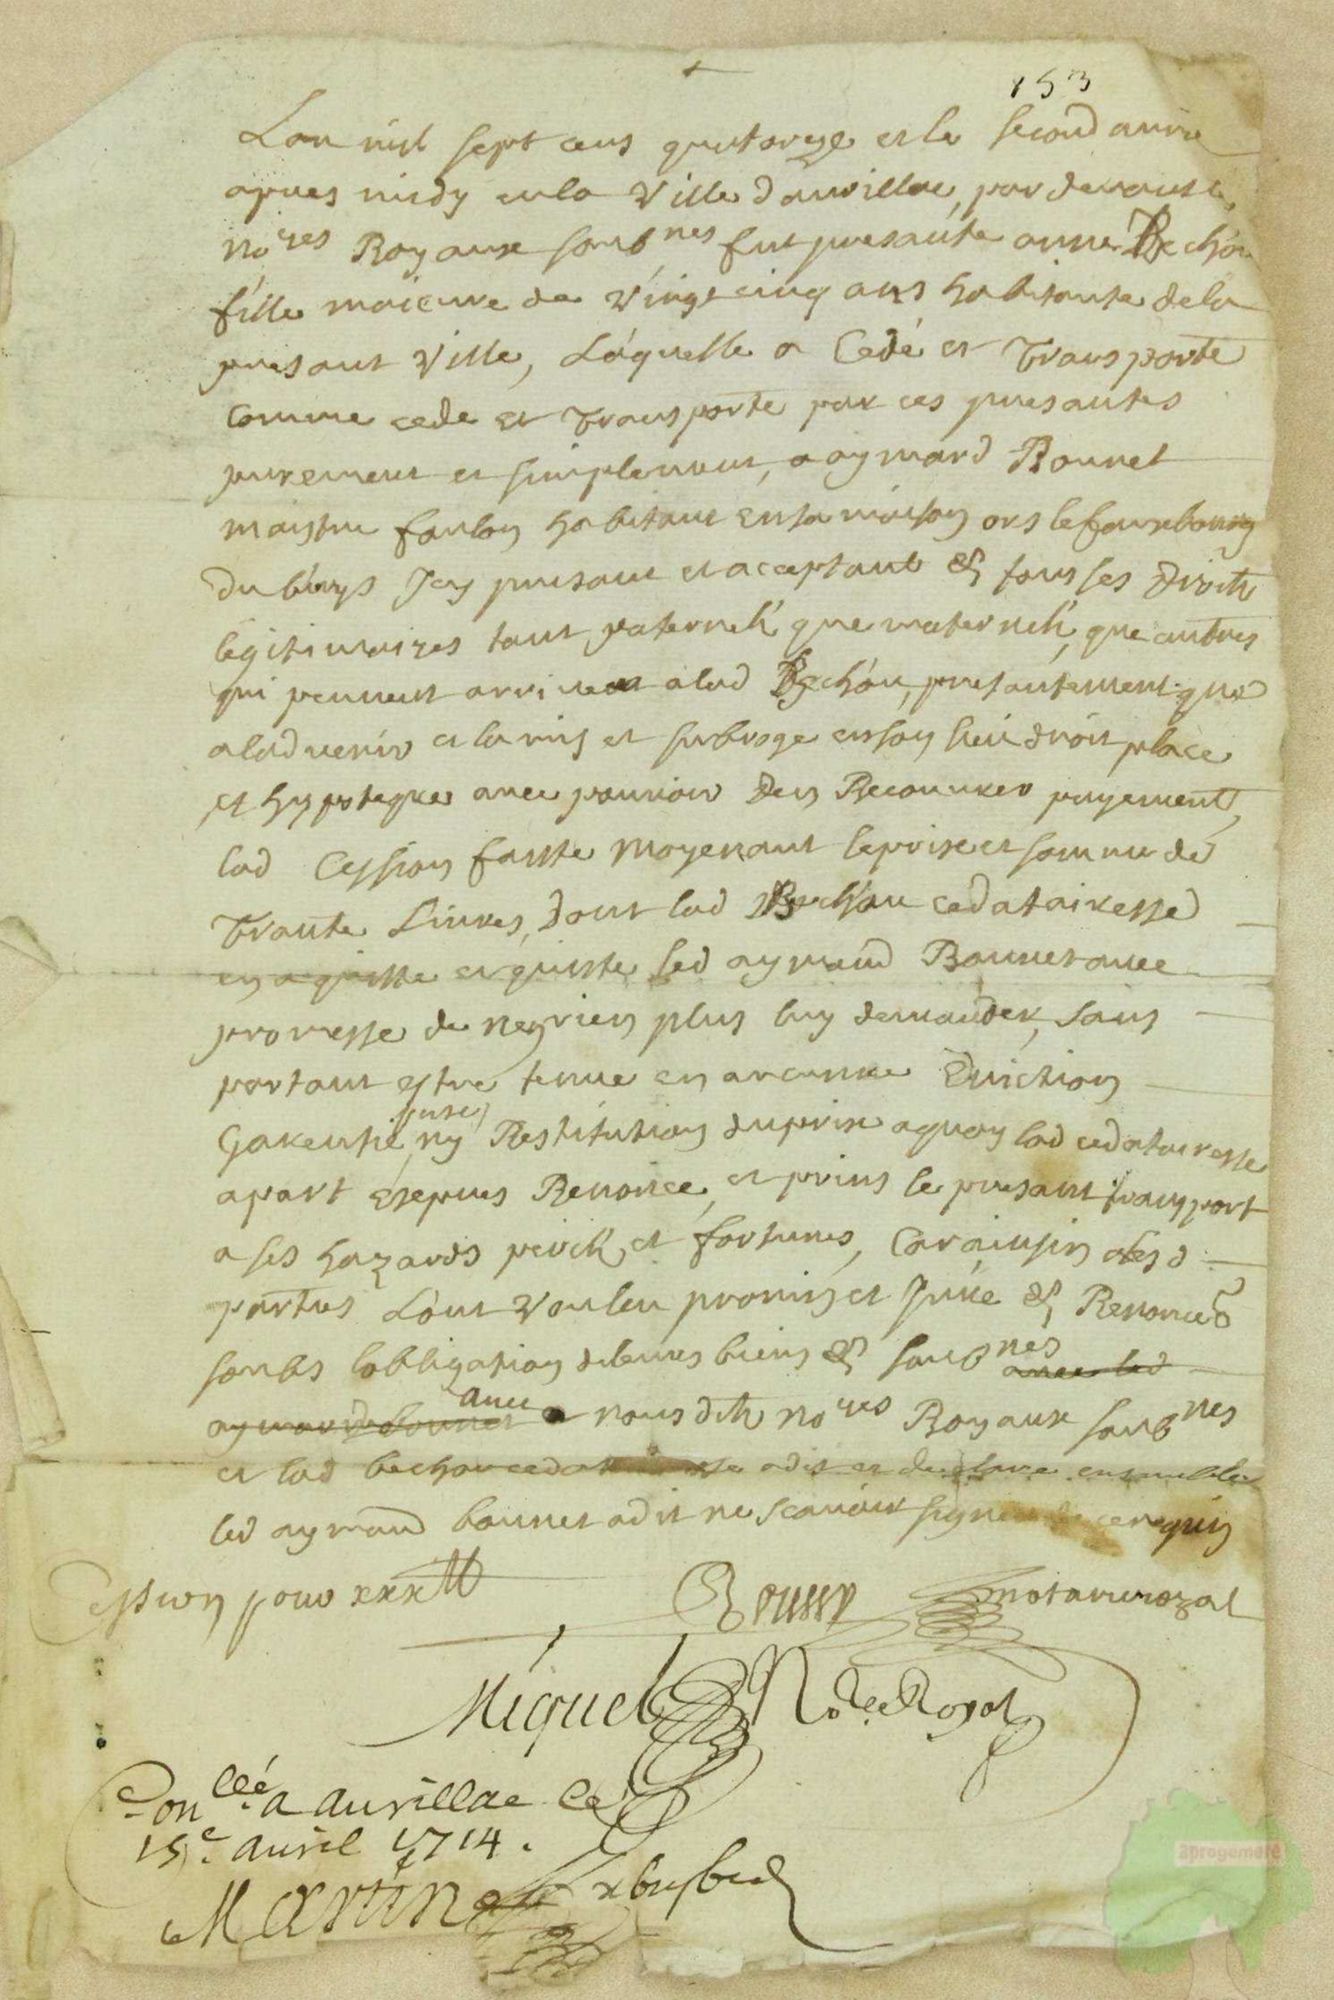 153
Lan mil sept cens quatorze et le second avril
apres midy en la Ville daurillac, par devant les
no.res Royaux soub.nes fut presante anne Bechon
fille maieure de vingt cinq ans habitante de la
presant Ville, Laquelle a Cedé et Transporté
comme cede et Transporte par ces presantes
purement et simplement, a aymard Bonnet
maistre foulon habitant en sa maison ors le fauxbourg
du buys Icy presant et acceptant & tous ses droits
legitimaires tant paternels que maternels, que autres
qui peuvent arriver a lad Bechon, presantement que
a ladvenir et la mis et subroge en son lieu droit place
et hypoteque avec pouvoir den Recouvrer payement,
lad Cession faitte Moyenant le prix et somme de
Trante Livres, dont lad Bechon cedatairesse
en a quitte et quitte led aymard Bonnet avec
promesse de ney rien plus luy demander, sans
portant estre tenue en aucune Eviction
Garentie, ny Restitution du prix a quoy lad cedatairesse
a part exepres Renoncé, et prins le presant transport
a ses hazards perils et fortunes, Car ainsin lesd
parties Lont voulu promis et Juré & Renoncé
soubs lobligation de leurs biens & soub.nes avec led
aymard bonnet avec nous dits no.res Royaux soub.nes
et lad bechon cedatairesse a dit et declare ensemble
led aymard bonnet a dit ne scavoir signer de ce requis
Cession pour xxx ll
Roussy notaire royal
Miquel No.re Royal
Con.llé a aurillac le
15e. avril 1714.
Martin